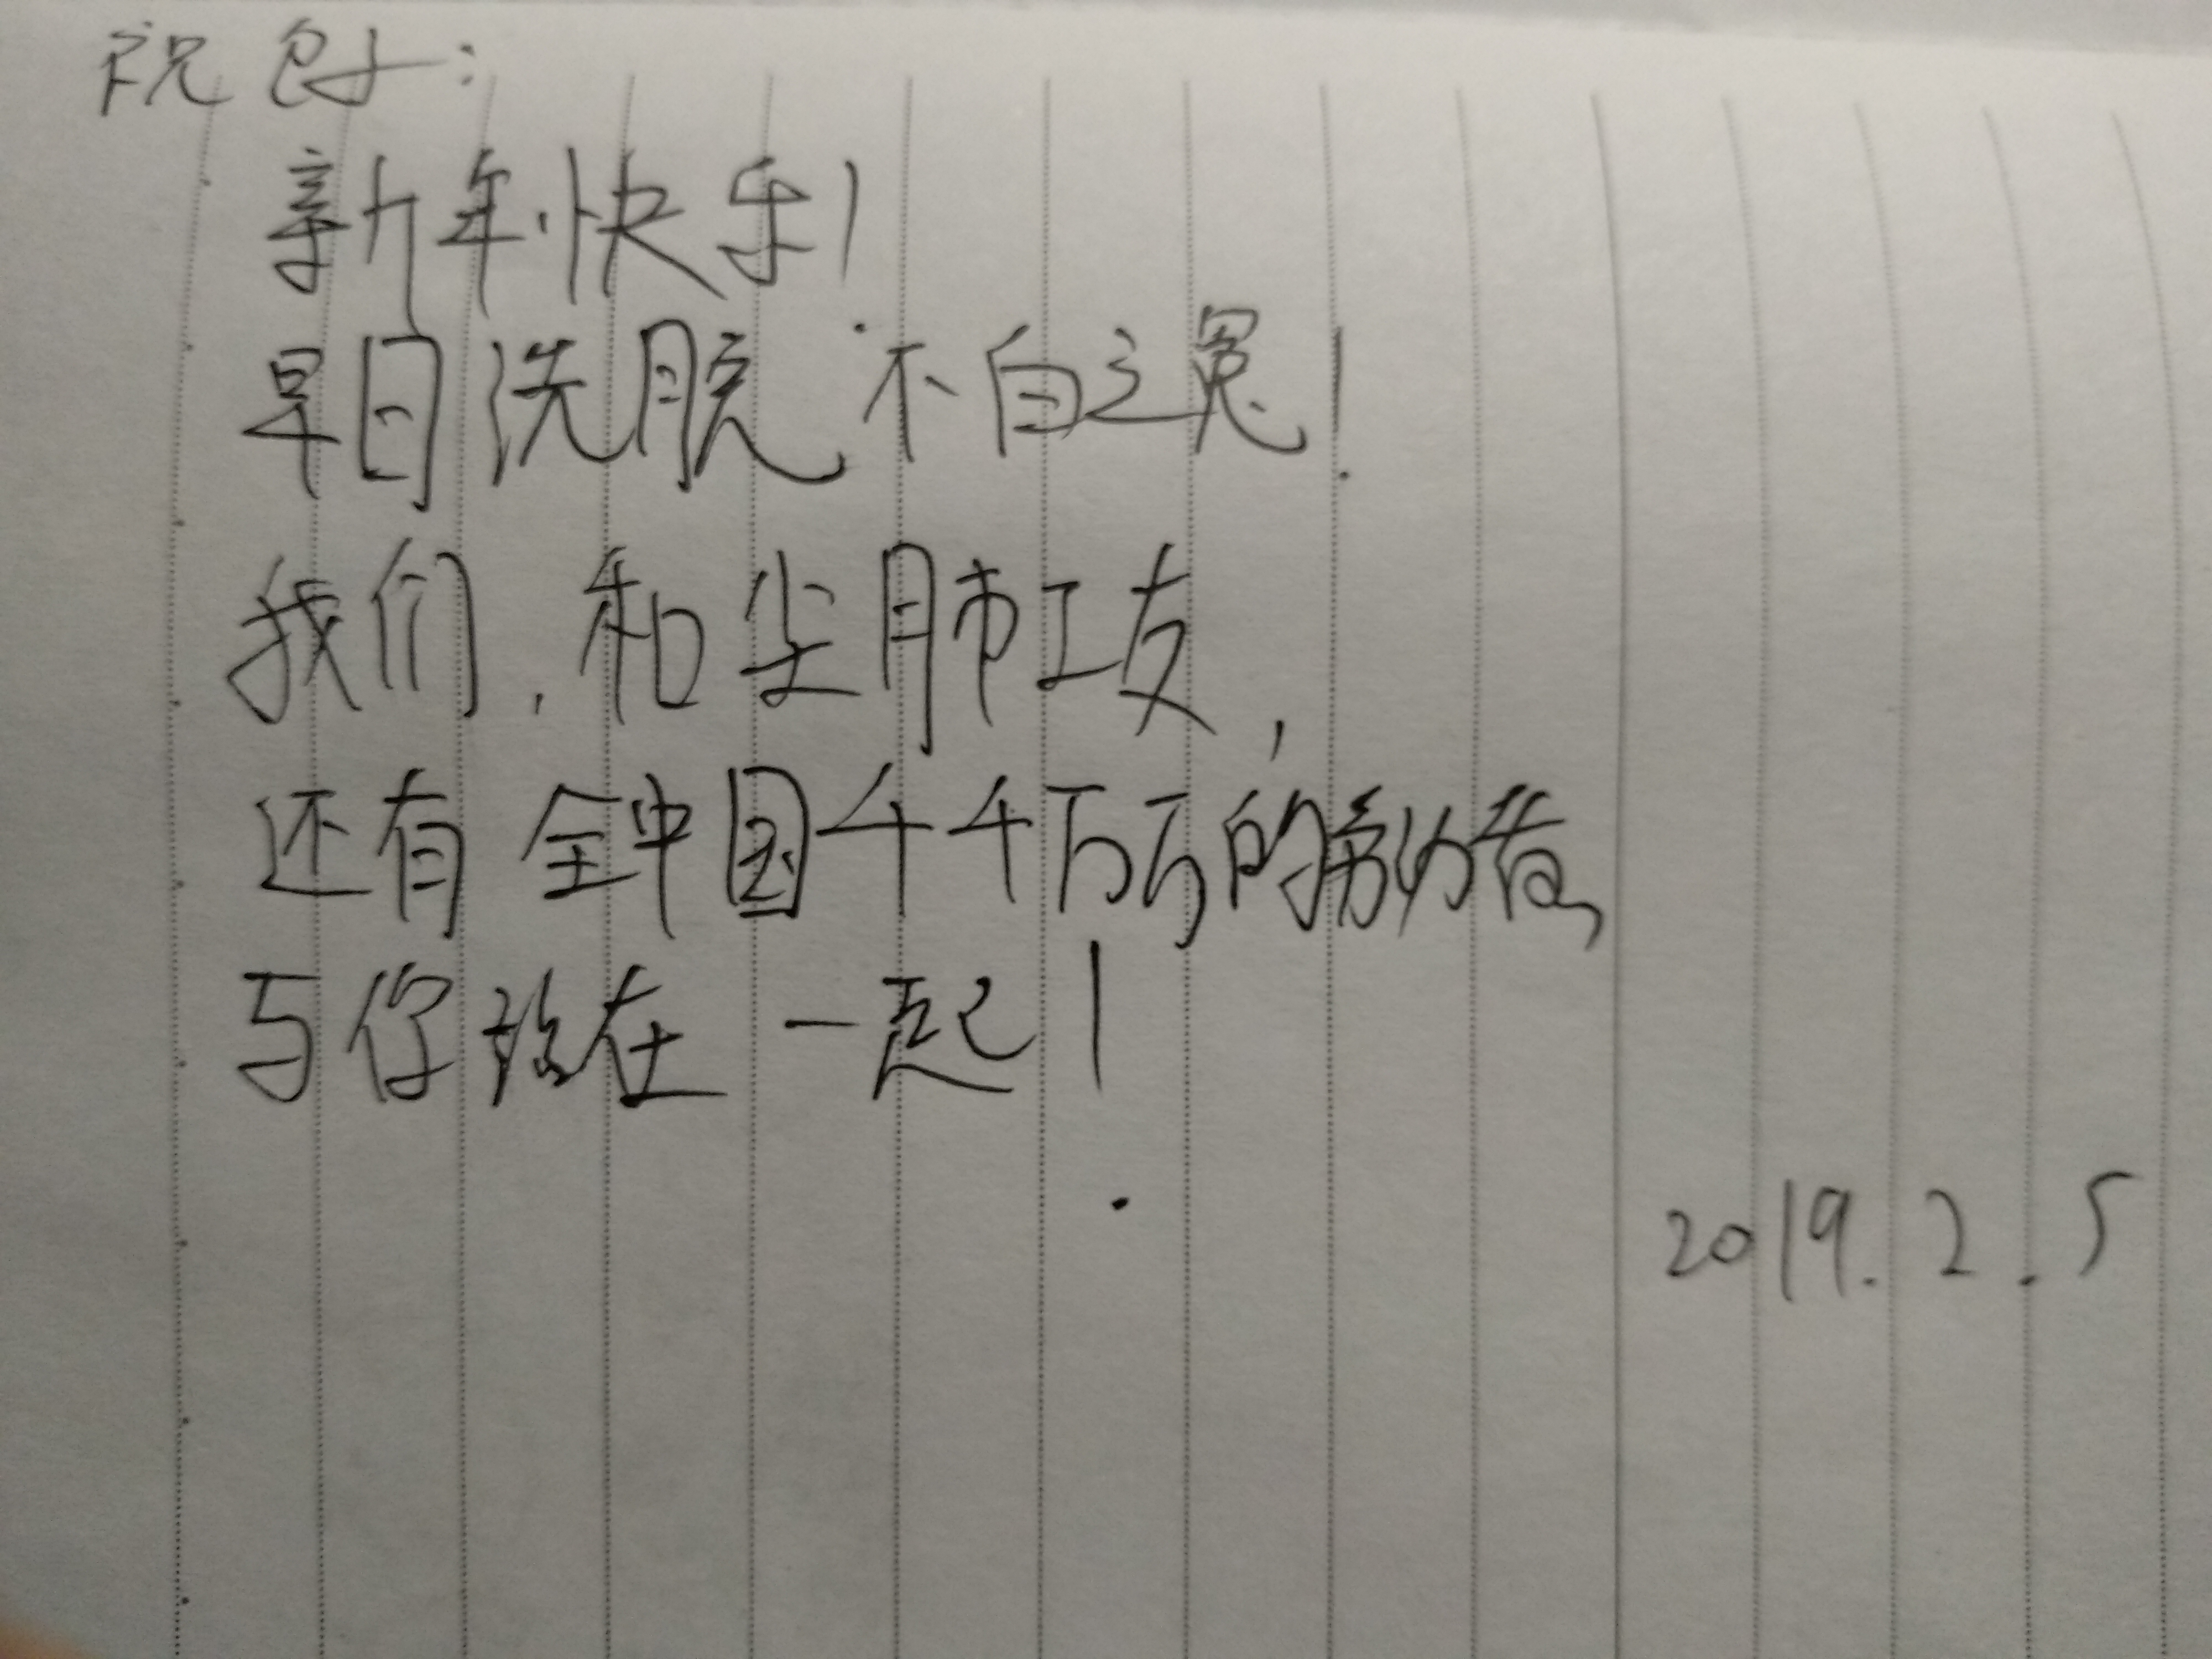 祝包子:
新年快乐!
早日洗脱 不白之冤!
我们,和尘肺工友,
还有 全中国千千万万的劳动者,
与你站在 一起!
2019.2.5